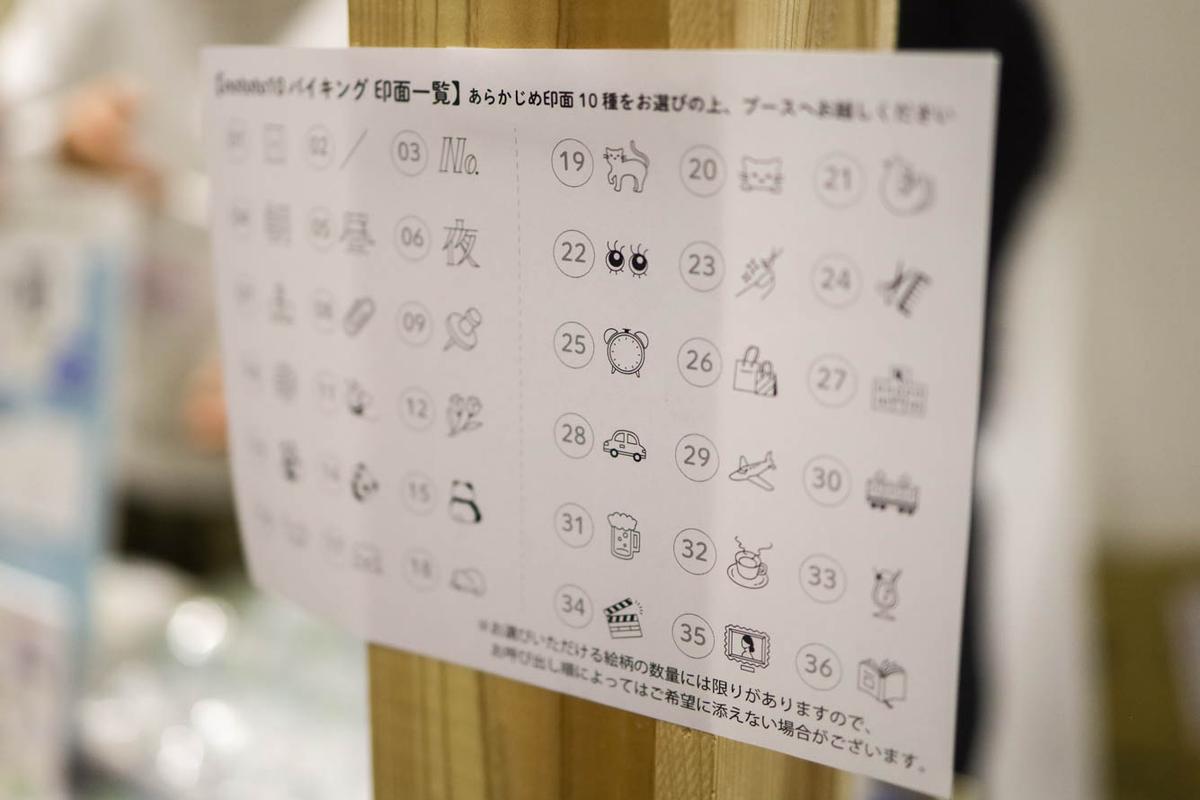 バイキング 印面一覧】あらかじめ印面10種をお選びの上、ブースへお越しください
02 03 No.
05 昼 06 夜
09
12
15
18
19 20 21
22 23 24
25 26 27
28 29 30
31 32 33
34 35 36
※お選びいただける絵柄の数量には限りがありますので、
お呼び出し順によってはご希望に添えない場合がございます。